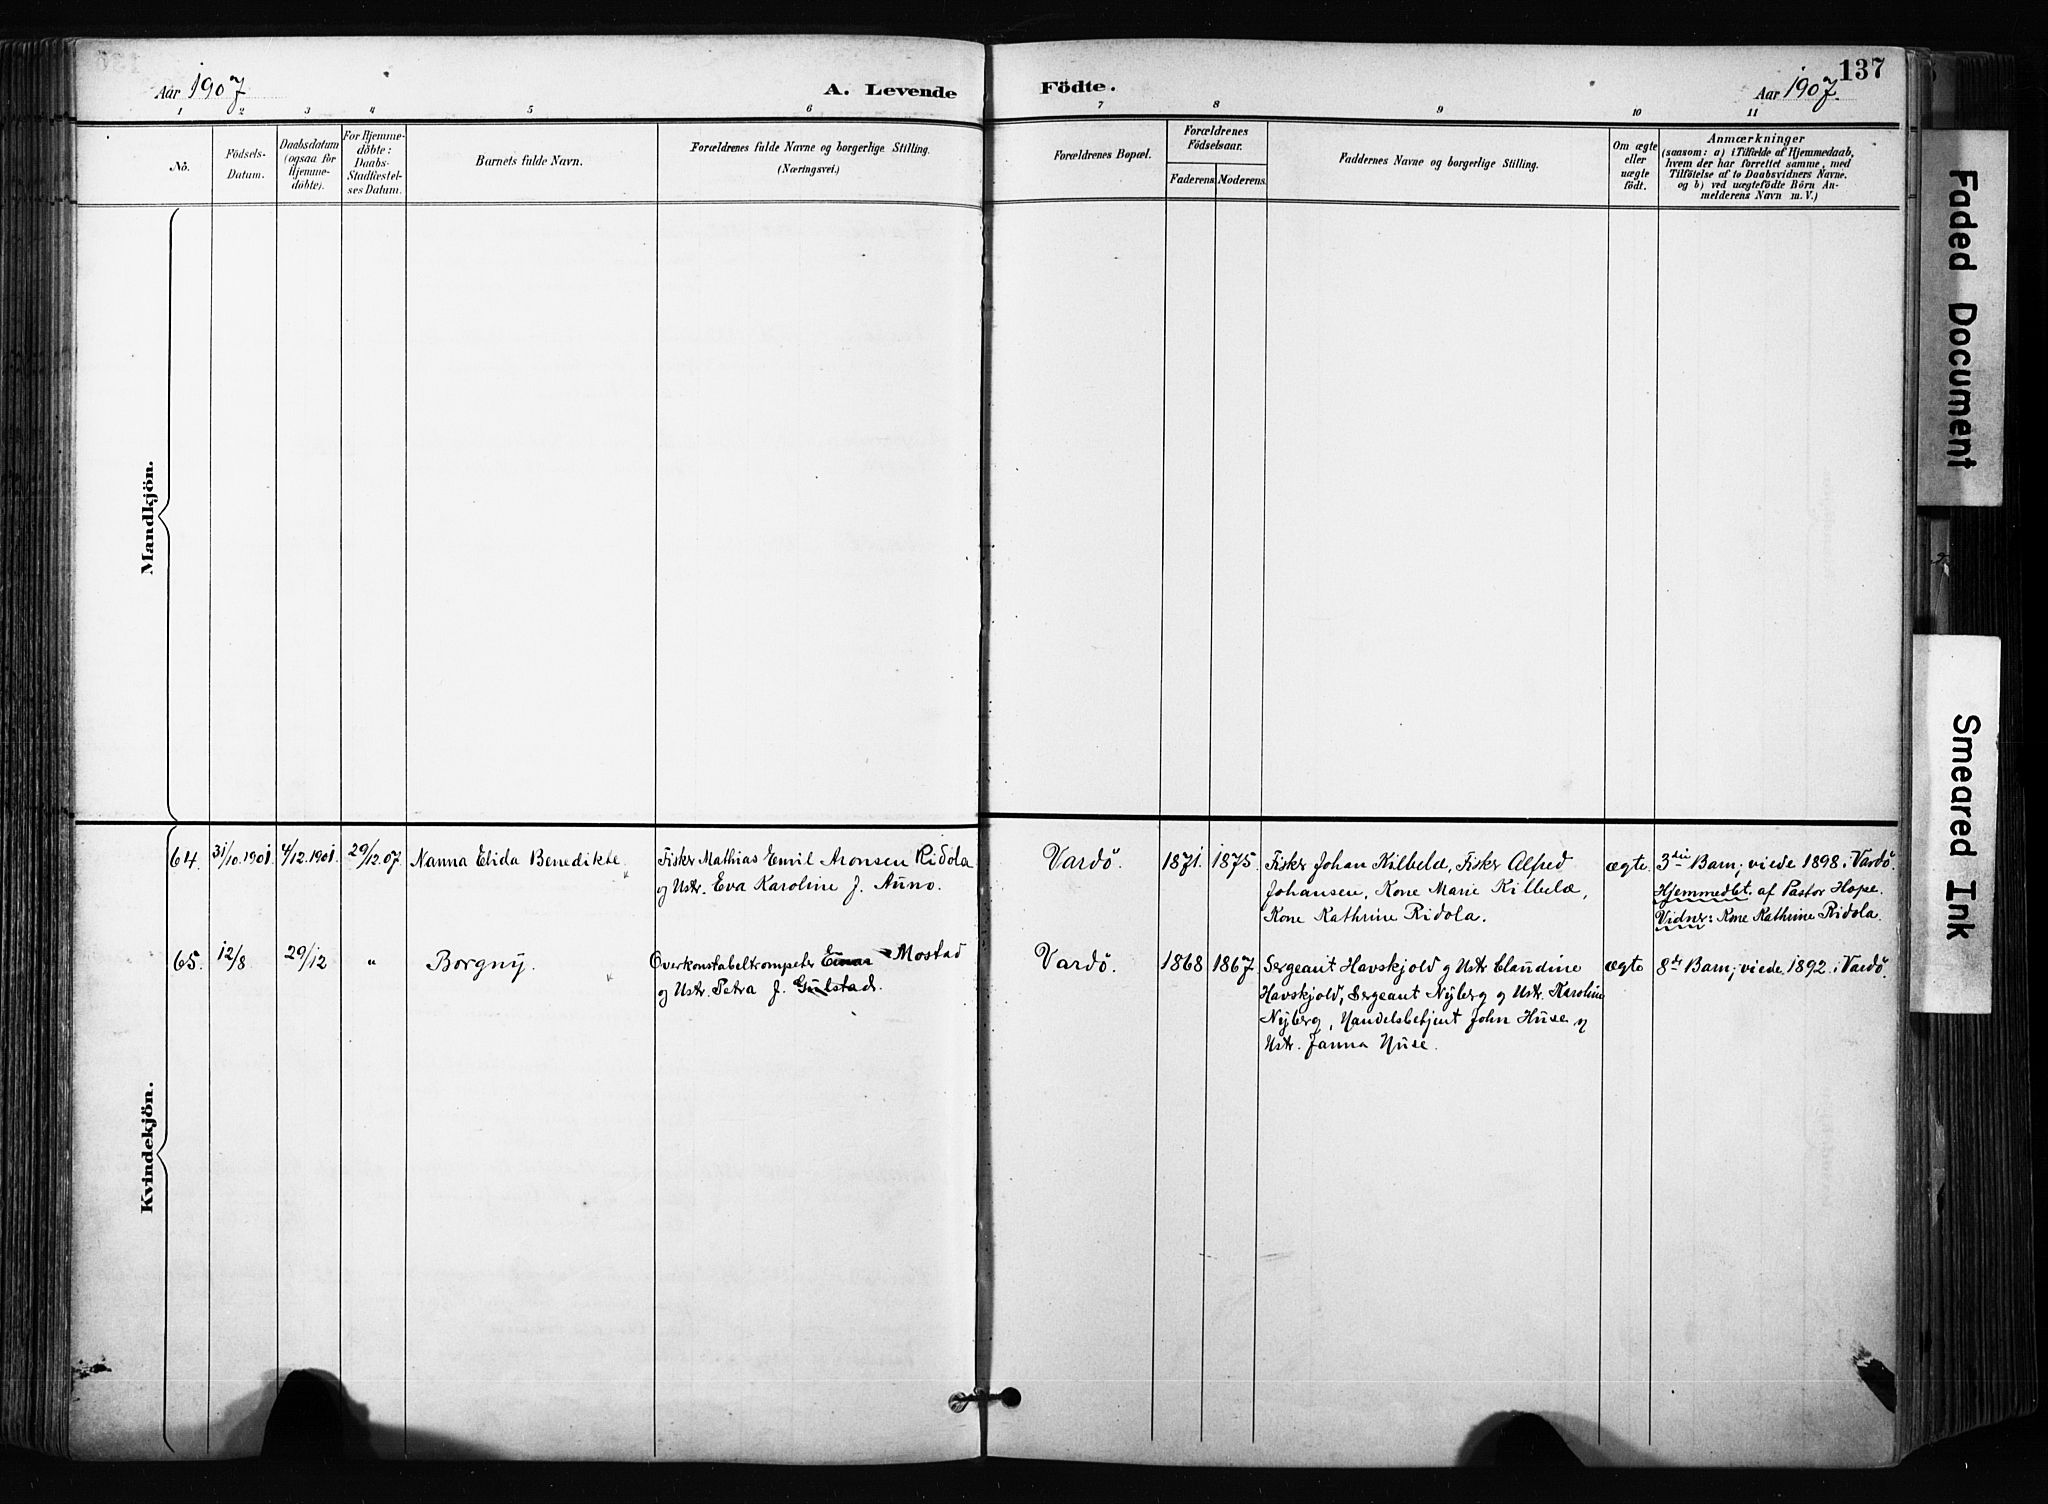 137
Aar 1907
A. Levende Födte.
Aar 1907.
1 2 3 4 5 6 7 8 9 10 11
No.
Födsels-
Datum.
Daabsdatum
(ogsaa for
Hjemme-
døbte).
For Hjemme-
døbte:
Daabs-
Stadfæstel-
ses Datum.
Barnets fulde Navn.
Forældrenes fulde Navne og borgerlige Stilling.
(Næringsvei.)
Forældrenes Bopæl.
Forældrenes
Födselsaar.
Faderens. Moderens.
Faddernes Navne og borgerlige Stilling.
Om ægte
eller
uægte
født.
Anmærkninger
(saasom: a) i Tilfælde af Hjemmedaab,
hvem der har forrettet samme, med
Tilföielse af to Daabsvidners Navne.
og b) ved uægtefödte Börn An-
melderens Navn m. V.)
Mandkjön.
Kvindekjön.
64. 31/10.1901. 4/12.1901. 29/12.07. Nanna Elida Benedikte. Fisker Mathias Emil Aronsen Ridola Vardö. 1871. 1875. Fisker Johan Kilbelä, Fisker Alfred ægte. 3die Barn; viede 1898 i Vardö.
og Ustr. Eva Karoline J. Auno. Johansen, Kone Marie Kilbelä, Hjemmedbt. af Pastor Hope.
Kone Kathrine Ridola. Vidner: Kone Kathrine Ridola.
65. 12/8 29/12 " Borgny. Overkonstabeltrompeter Einar Mostad Vardö. 1868 1867. Sergeant Havskjold og Ustr Claudine ægte 8de Barn; viede 1892 i Vardö.
og Ustr. Petra J. Gulstad. Havskjold, Sergeant Nyberg og Ustr. Karoline
Nyberg, Handelsbetjent John Huse og
Ustr. Janna Huse.
Faded Document
Smeared Ink